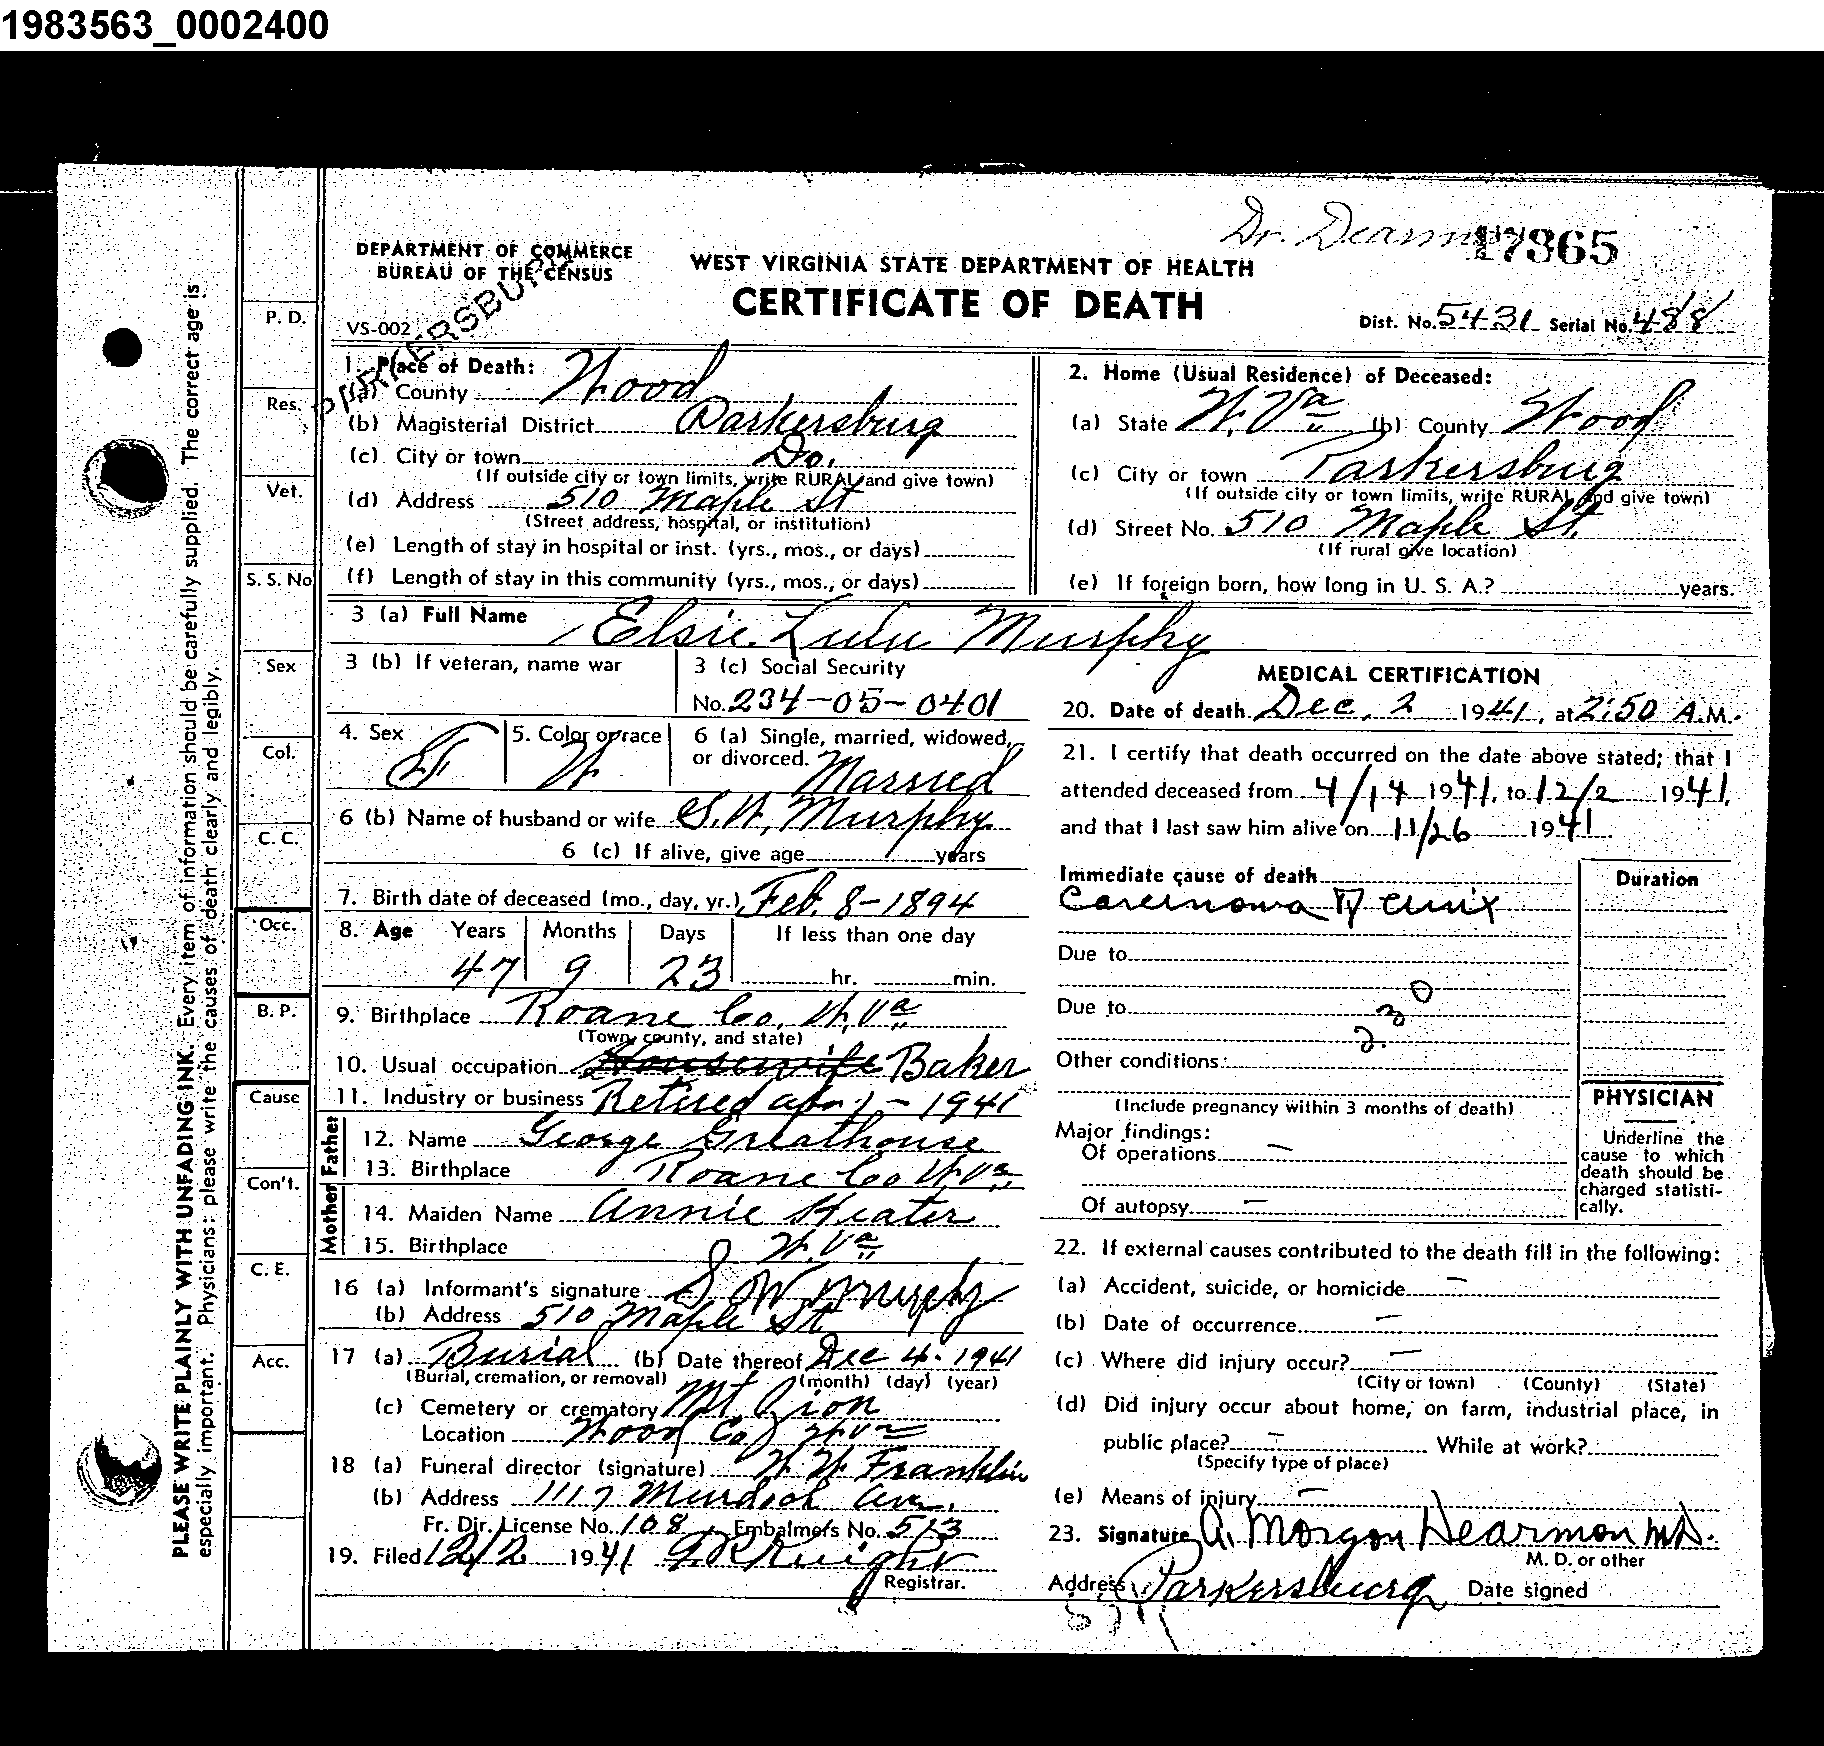 1983563_0002400
Dr. Dearman
17865
DEPARTMENT OF COMMERCE
BUREAU OF THE CENSUS
WEST VIRGINIA STATE DEPARTMENT OF HEALTH
CERTIFICATE OF DEATH
VS-002
PARKERSBURG
Dist. No. 5431 Serial No. 488
1. Place of Death:
(a) County Wood
(b) Magisterial District Parkersburg
(c) City or town Do.
(If outside city or town limits, write RURAL and give town)
(d) Address 510 Maple St
(Street address, hospital, or institution)
(e) Length of stay in hospital or inst. (yrs., mos., or days)
(f) Length of stay in this community (yrs., mos., or days)
2. Home (Usual Residence) of Deceased:
(a) State W. Va (b) County Wood
(c) City or town Parkersburg
(If outside city or town limits, write RURAL and give town)
(d) Street No. 510 Maple St.
(If rural give location)
(e) If foreign born, how long in U. S. A.? years.
3 (a) Full Name Elsie Lulu Murphy
3 (b) If veteran, name war
3 (c) Social Security
No. 234-05-0401
4. Sex F
5. Color or race W
6 (a) Single, married, widowed, or divorced. Married
6 (b) Name of husband or wife S. W. Murphy
6 (c) If alive, give age years
7. Birth date of deceased (mo., day, yr.) Feb. 8-1894
8. Age Years Months Days If less than one day
47 9 23 hr. min.
9. Birthplace Roane Co. W. Va
(Town, county, and state)
10. Usual occupation Housewife Baker
11. Industry or business Retired apr 1-1941
Father
12. Name George Greathouse
13. Birthplace Roane Co W. Va
Mother
14. Maiden Name Annie Keater
15. Birthplace W. Va
16 (a) Informant's signature S W Murphy
(b) Address 510 Maple St
17 (a) Burial (b) Date thereof Dec 4. 1941
(Burial, cremation, or removal) (month) (day) (year)
(c) Cemetery or crematory Mt Zion
Location Wood Co W. Va
18 (a) Funeral director (signature) W. W. Franklin
(b) Address 1117 Murdoch Ave.
Fr. Dir. License No. 108 Embalmer's No. 513
19. Filed 12/2 1941 Knight
Registrar.
MEDICAL CERTIFICATION
20. Date of death Dec. 2 1941, at 2:50 A.M.
21. I certify that death occurred on the date above stated; that I
attended deceased from 4/14 1941, to 12/2 1941,
and that I last saw him alive on 11/26 1941.
Immediate cause of death
Duration
Carcinoma of cervix
Due to
Due to
Other conditions:
(Include pregnancy within 3 months of death)
Major findings:
Of operations —
Of autopsy —
PHYSICIAN
Underline the
cause to which
death should be
charged statisti-
cally.
22. If external causes contributed to the death fill in the following:
(a) Accident, suicide, or homicide —
(b) Date of occurrence —
(c) Where did injury occur? —
(City or town) (County) (State)
(d) Did injury occur about home, on farm, industrial place, in
public place? — While at work?
(Specify type of place)
(e) Means of injury —
23. Signature A. Morgan Dearman M.D.
M. D. or other
Address Parkersburg Date signed
P. D.
Res.
Vet.
S. S. No
Sex
Col.
C. C.
Occ.
B. P.
Cause
Con't.
C. E.
Acc.
PLEASE WRITE PLAINLY WITH UNFADING INK. Every item of information should be carefully supplied. The correct age is
especially important. Physicians: please write the causes of death clearly and legibly.